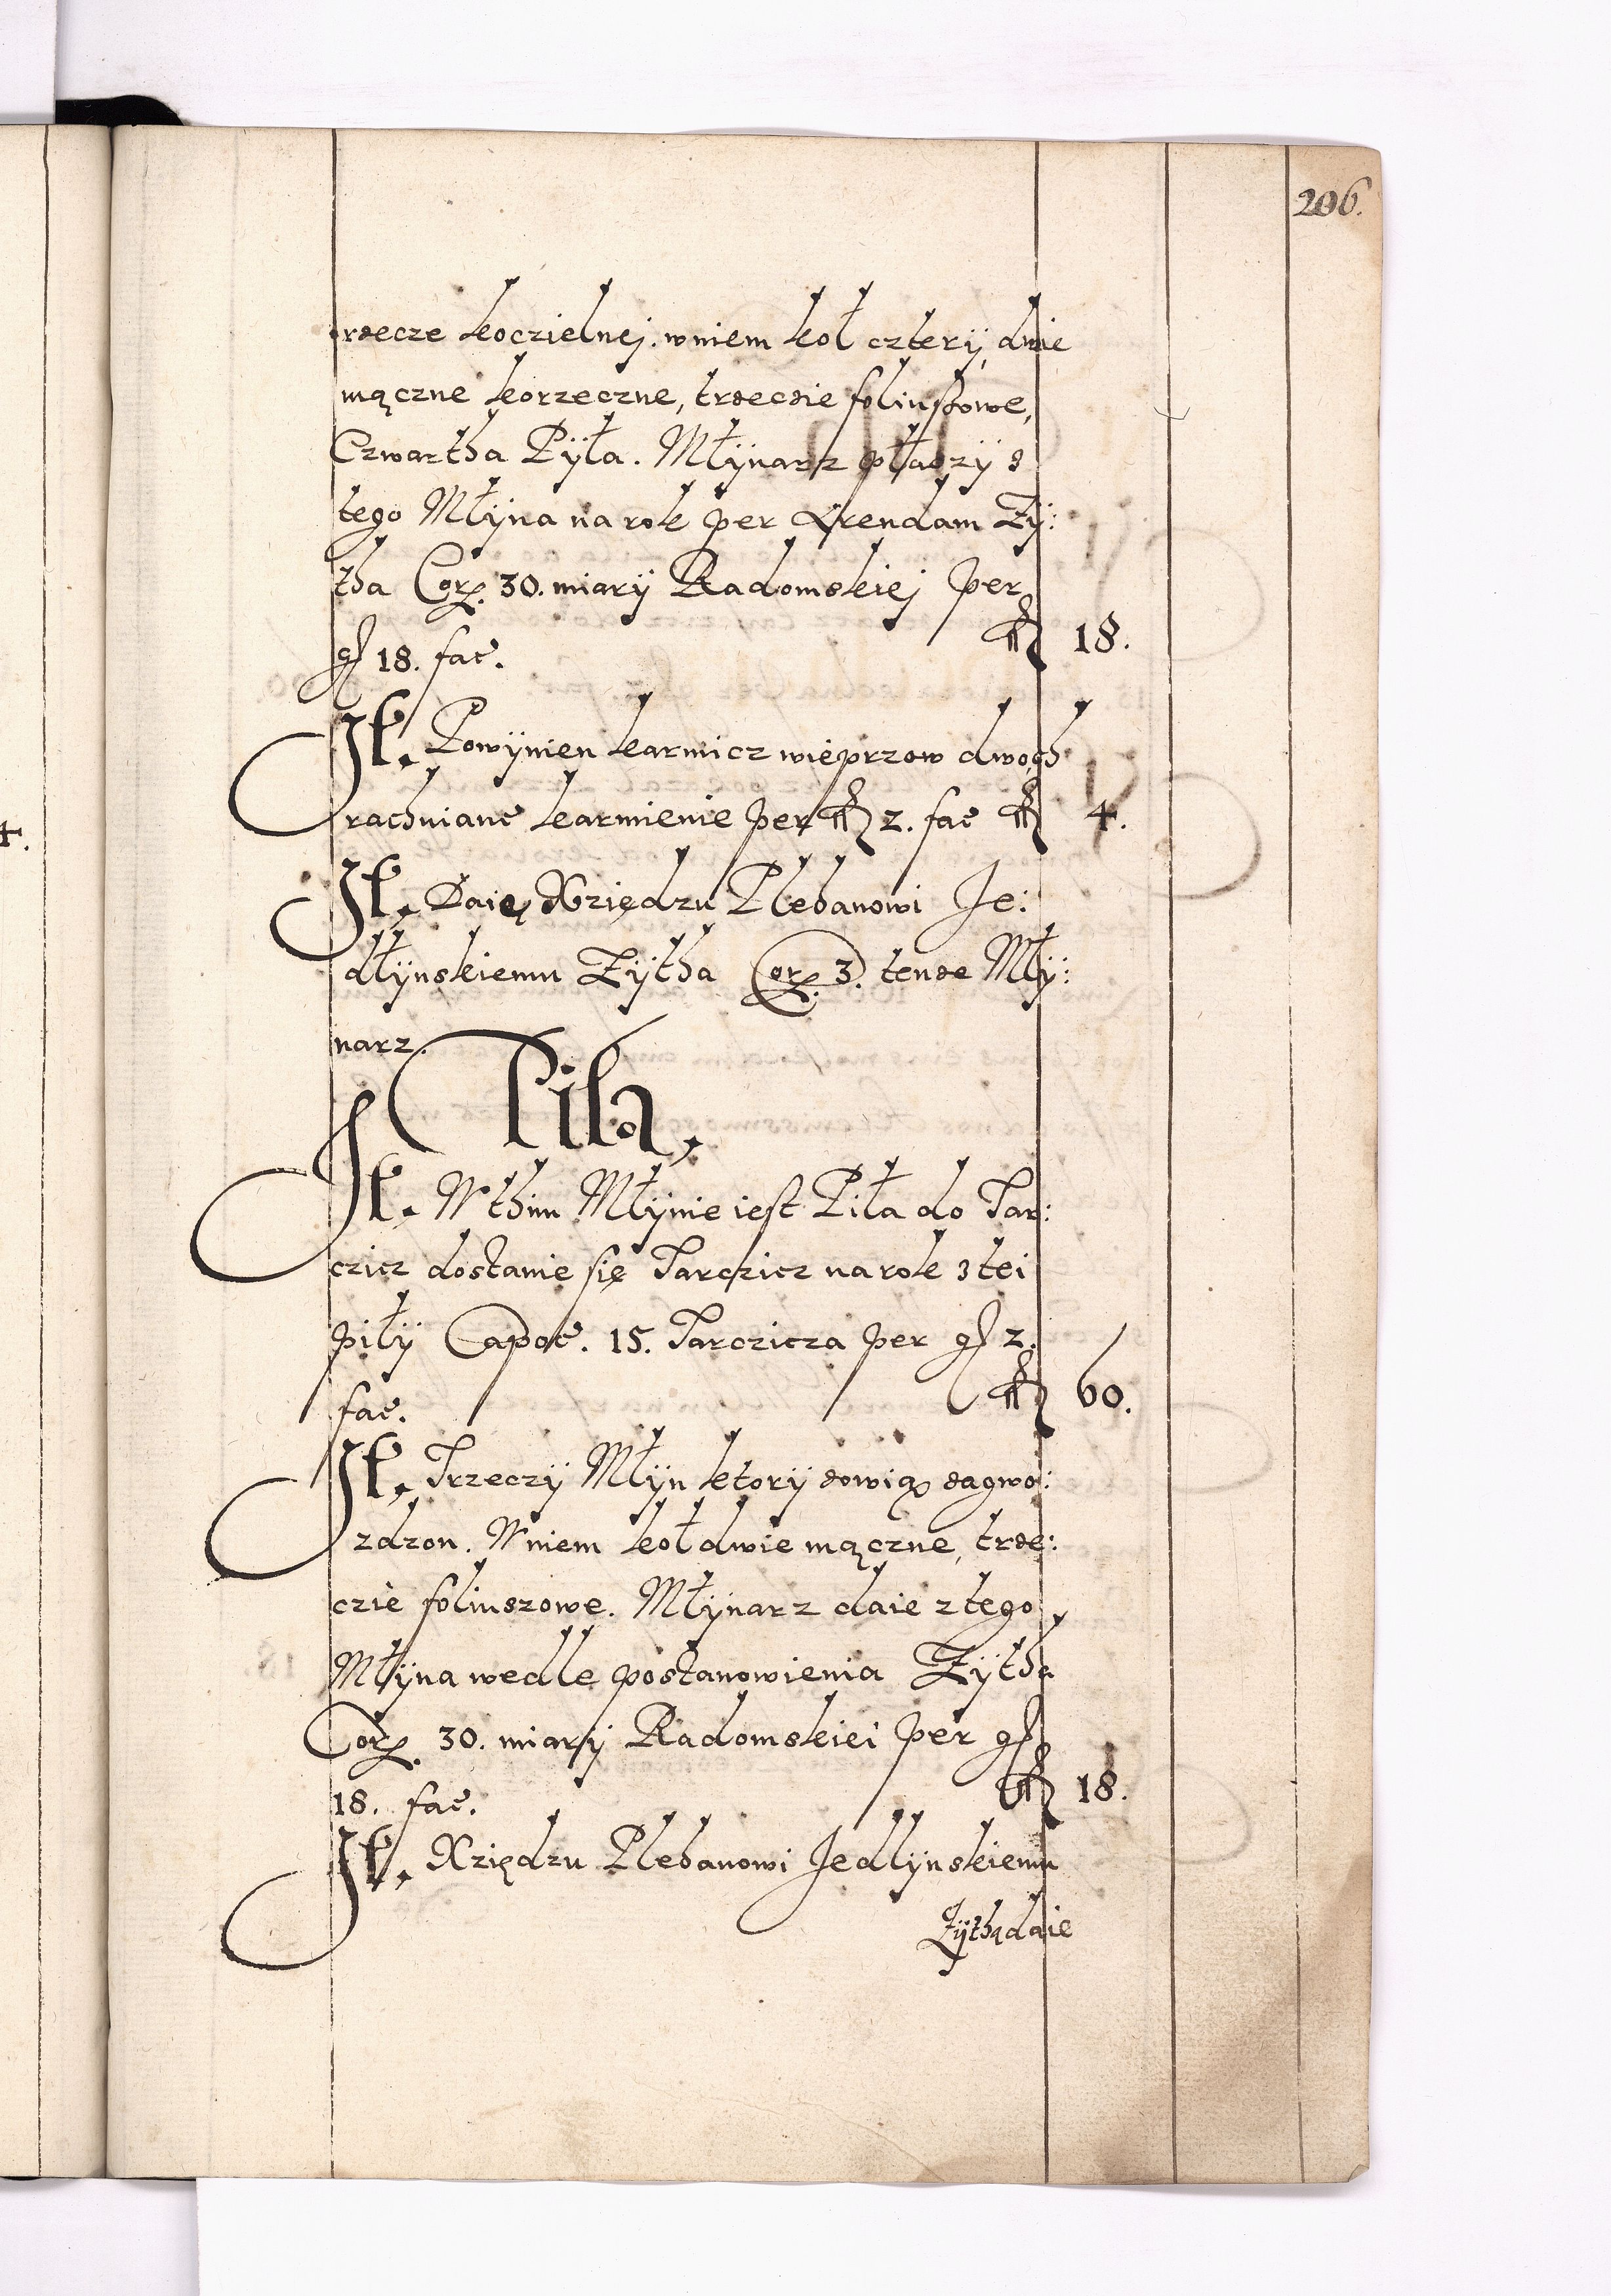 206.
rzecze koczielnej. w niem koł czterÿ, dwie
mączne korzeczne, trzeczie foliuszowe,
Czwartha Pÿła. Młÿnarz płaczÿ z
tego Młÿna na rok per Arendam Zÿ:
tha Corz. 30. miarÿ Radomskiej per
gl 18. fac. fl 18.
It. Powÿnien karmicz wieprzow dwoch
rachuiane karmienie per fl 2. fac fl 4.
It. Daię Xzięd­zu Plebanowi Je:
dłÿnskiemu Zÿtha Corz. 3. tenze Młÿ:
narz.
Piła,
It. W thim Młÿnie iest Piła do Tar:
czicz dostanie się Tarczicz na rok z tei
piłÿ Capoc. 15. Tarczicza per gl 2.
fac. fl 60.
It. Trzeczÿ Młÿn ktorÿ zowią zagwo:
zdzon. W niem koł dwie mączne, trze:
czie foliuszowe. Młÿnarz daie z tego
Młÿna wedle postanowienia Zÿtha
Corz. 30. miarÿ Radomskiei per gl
18. fac. fl 18.
It. Xziędzu Plebanowi Jedlÿnskiemu
Zÿtha daie
4.